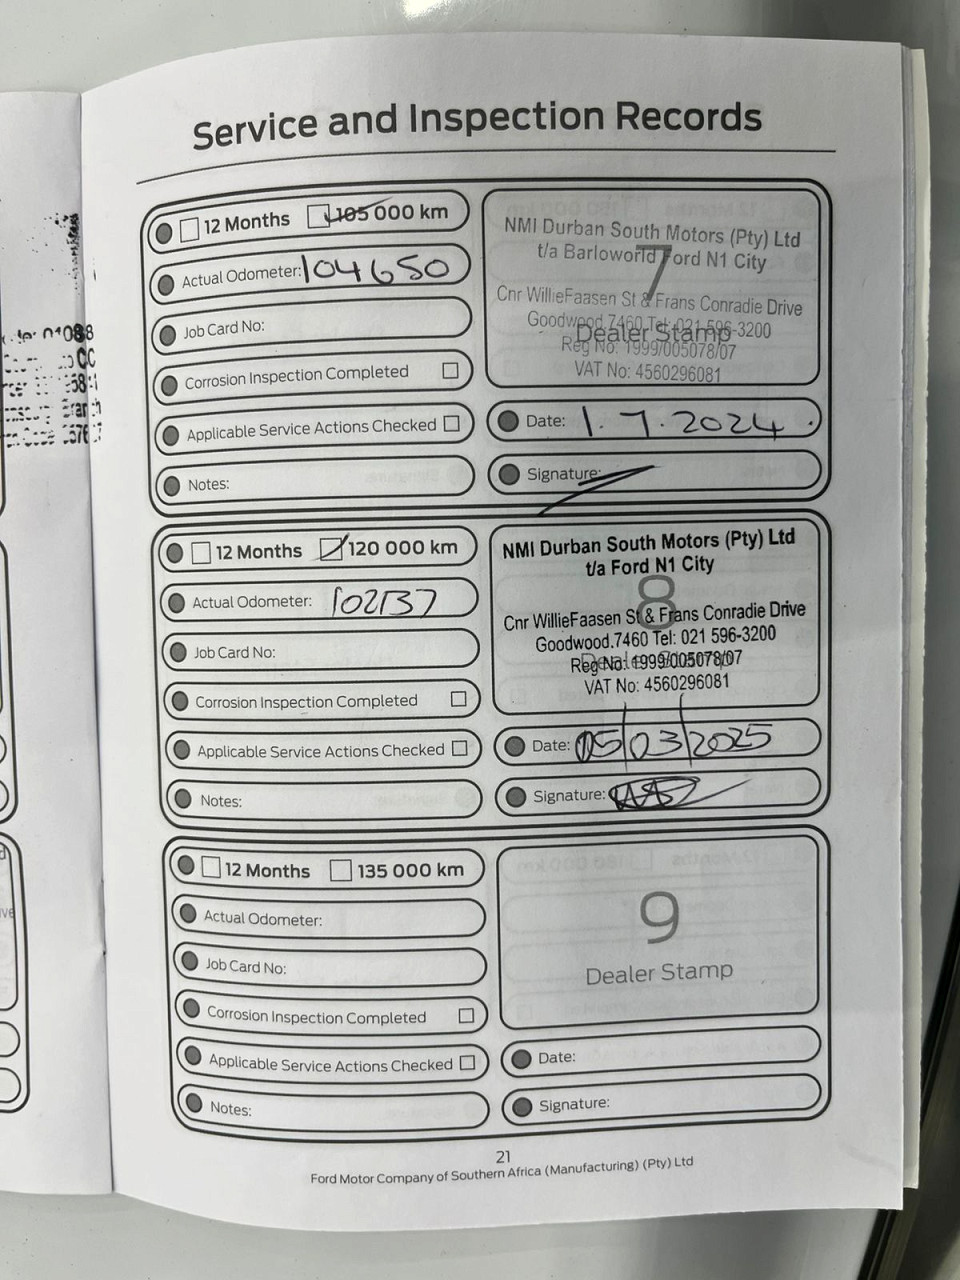 Service and Inspection Records
12 Months 105 000 km
Actual Odometer: 104650
Job Card No:
Corrosion Inspection Completed
Applicable Service Actions Checked
Notes:
NMI Durban South Motors (Pty) Ltd
t/a Barloworld Ford N1 City
7
Cnr WillieFaasen St & Frans Conradie Drive
Goodwood.7460 Tel: 021 596-3200
Dealer Stamp
Reg No: 1999/005078/07
VAT No: 4560296081
Date: 1.7.2024.
Signature:
12 Months 120 000 km
Actual Odometer: 102137
Job Card No:
Corrosion Inspection Completed
Applicable Service Actions Checked
Notes:
NMI Durban South Motors (Pty) Ltd
t/a Ford N1 City
8
Cnr WillieFaasen St & Frans Conradie Drive
Goodwood.7460 Tel: 021 596-3200
Dealer Stamp
Reg No: 1999/005078/07
VAT No: 4560296081
Date: 05/03/2025
Signature:
12 Months 135 000 km
Actual Odometer:
Job Card No:
Corrosion Inspection Completed
Applicable Service Actions Checked
Notes:
9
Dealer Stamp
Date:
Signature:
21
Ford Motor Company of Southern Africa (Manufacturing) (Pty) Ltd